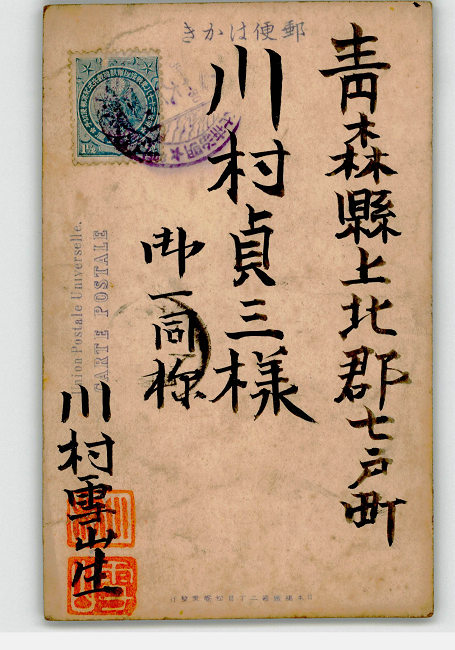 郵便はかき
青森縣上北郡七戸町
川村貞三様
御一同様
川村雪山生
Union Postale Universelle.
CARTE POSTALE